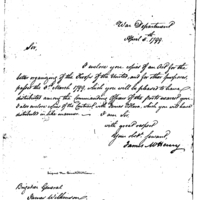 War Department
April 4th 1799.
Sir,
I enclose you copies of an Act for the
better organizing of the Troops of the United, and for other purposes,
passed the 3d March 1799, which you will be pleased to have
distributed among the commanding officers of the posts
I also enclose copies of the which you will have
distributed in like manner. I am Sir,
with great respect
Your Obt. Servant,
James McHenry
Brigadier General
James Wilkinson